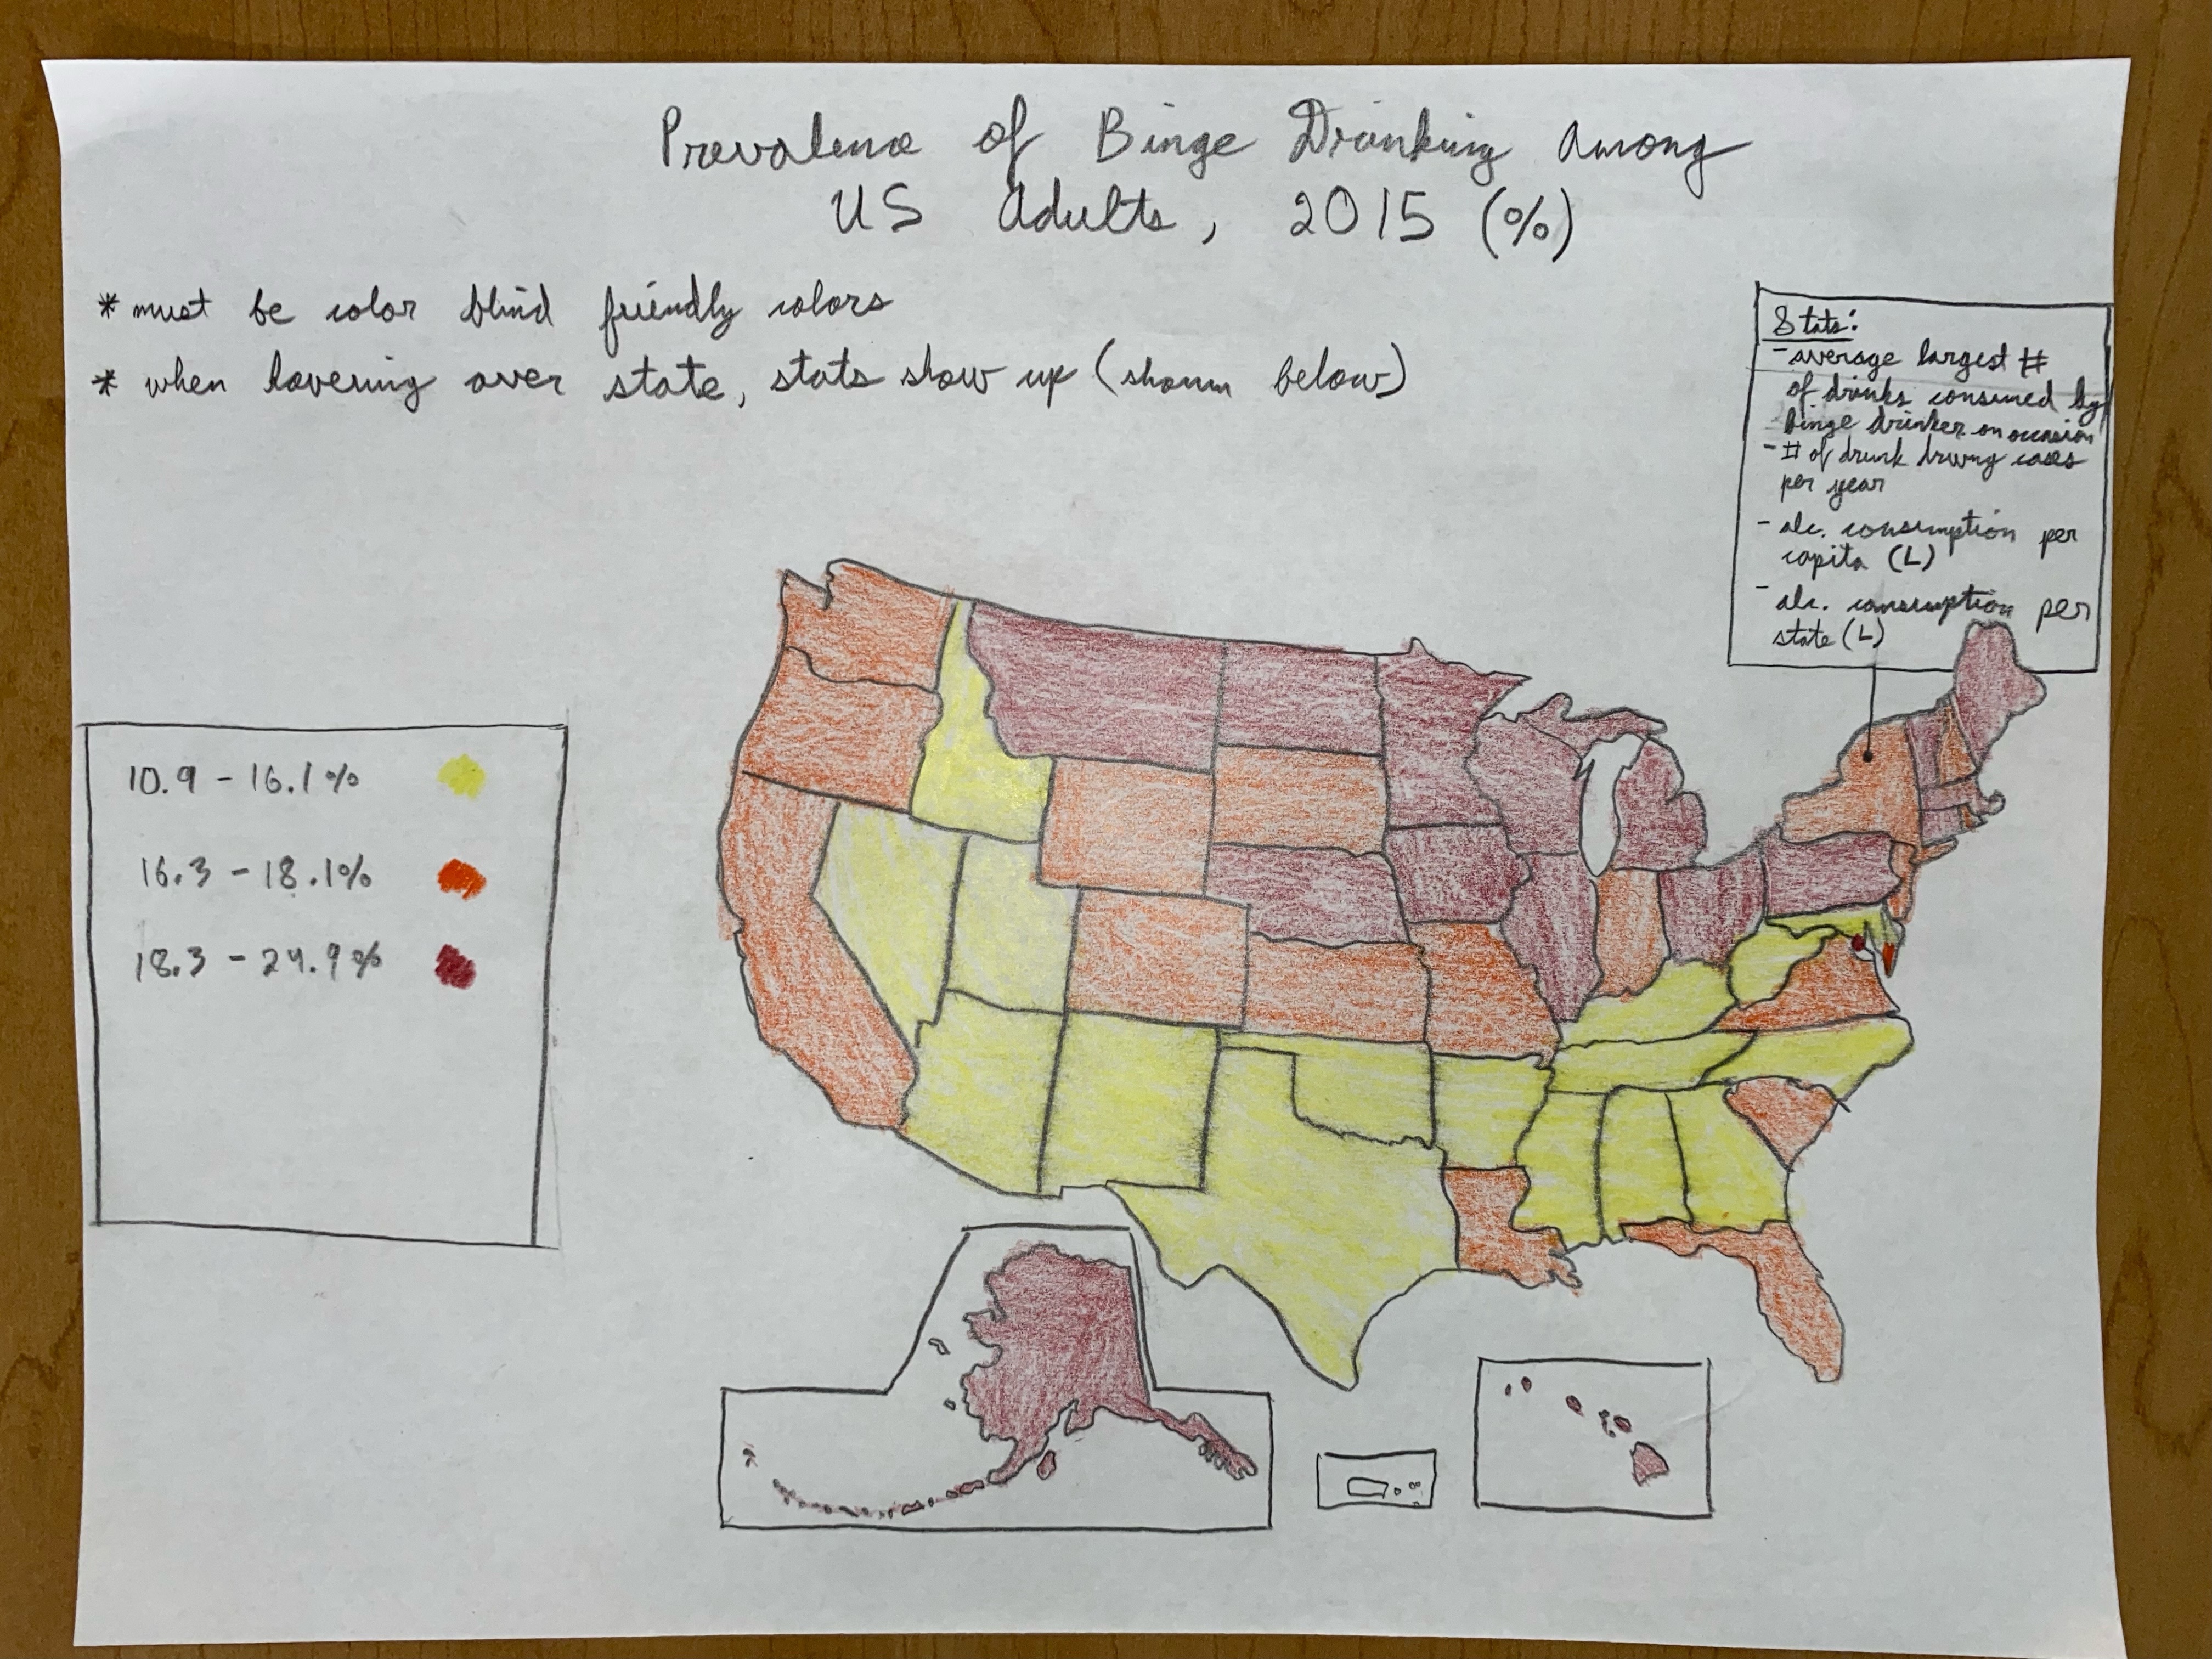 Prevalence of Binge Drinking Among
US Adults, 2015 (%)
* must be color blind friendly colors
* when hovering over state, stats show up (shown below)
Stats:
- average largest #
of drinks consumed by
binge drinker on occasion
- # of drunk driving cases
per year
- alc. consumption per
capita (L)
- alc. consumption per
state (L)
10.9 - 16.1%
16.3 - 18.1%
18.3 - 24.9%